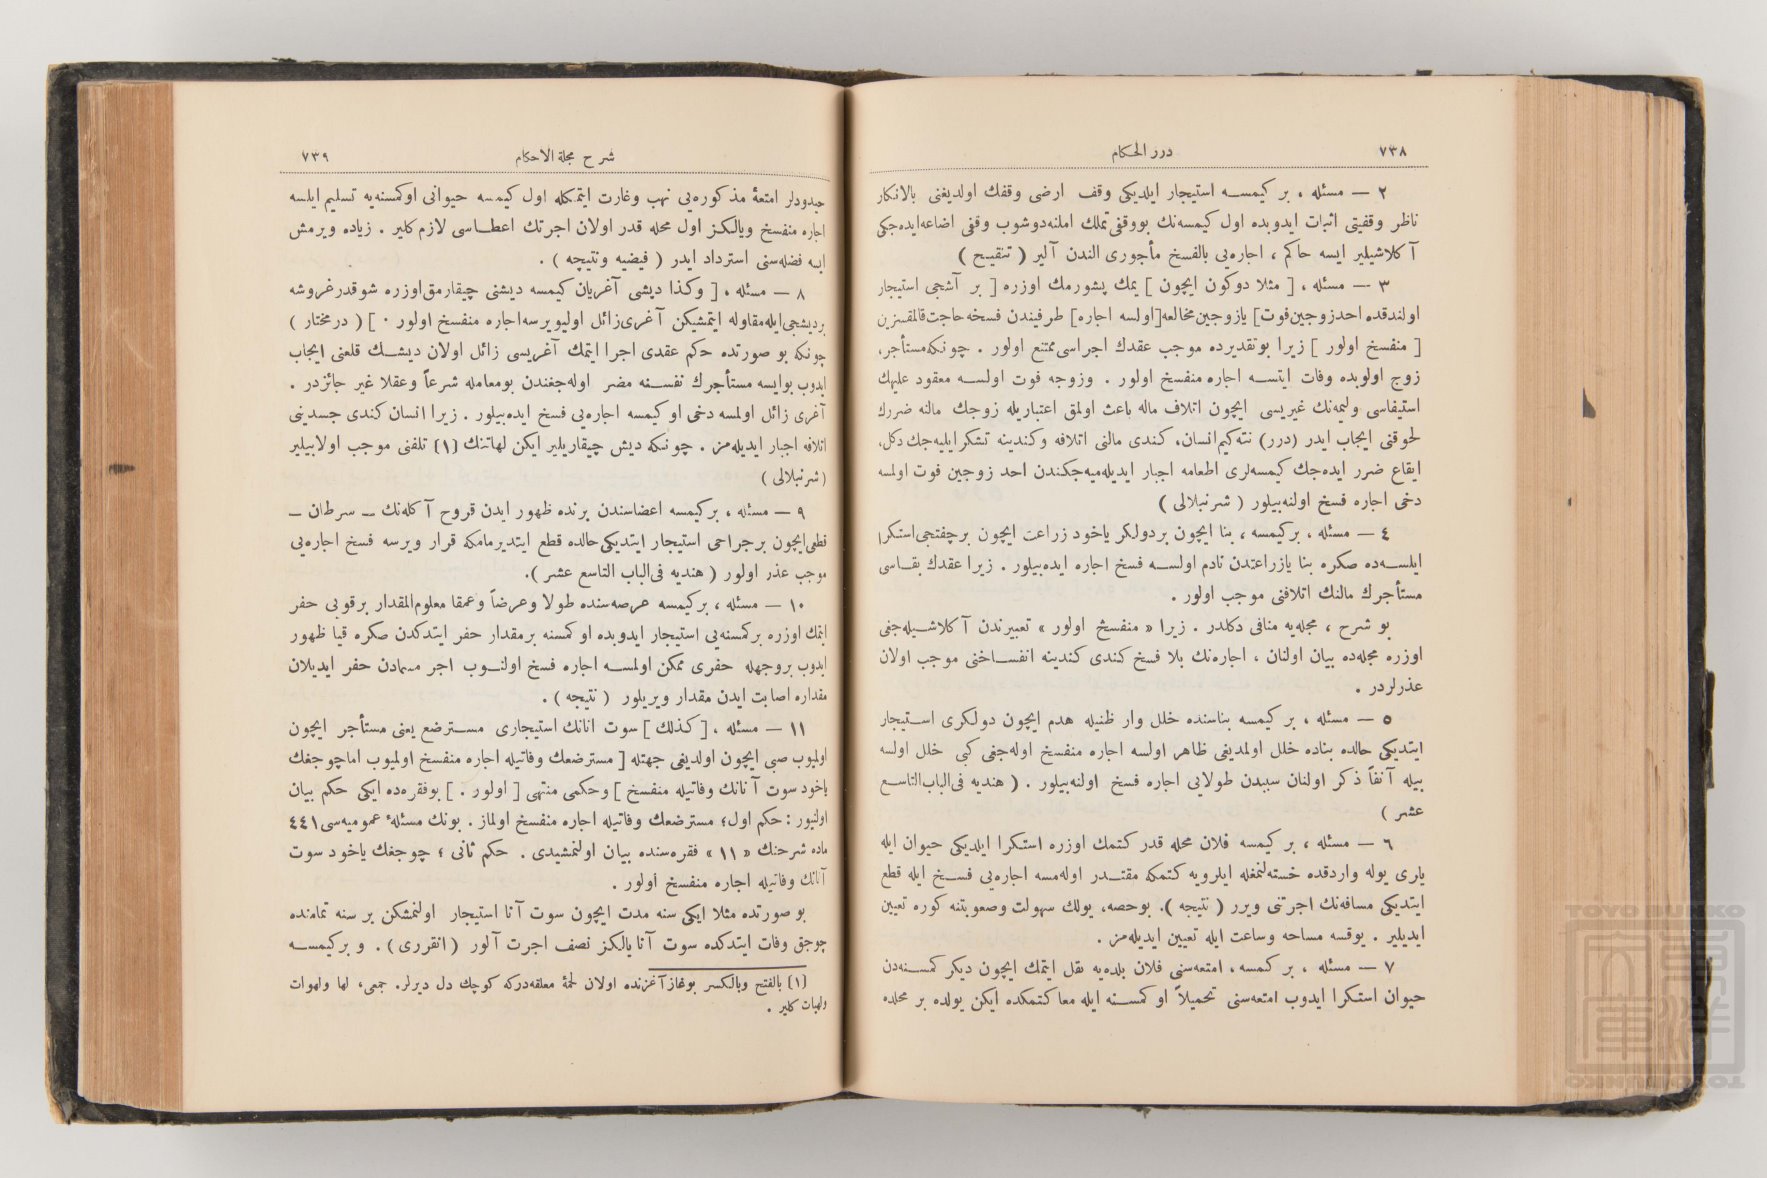 ٧٣٨
درر الحكام
٢ — مسئله ، بر كيمســه استيجار ايلديكى وقف ارضى وقفك اولديغنى بالانكار
ناظر وقفيتى اثبات ايدوبده اول كيمسه‌نك بووقفى تملك املنه‌دوشوب وقفى اضاعه‌ايده‌جكى
آكلاشيلير ايسه حاكم ، اجاره‌يى بالفسخ مأجورى الندن آلير ( تنقيح )
٣ — مسئله ، [ مثلا دوكون ايچون ] يمك پشورمك اوزره [ بر آشجى استيجار
اولندقده احدزوجين‌فوت] يازوجين‌مخالعه[اولسه اجاره] طرفيندن فسخه‌حاجت‌قالمقسزين
[ منفسخ اولور ] زيرا بوتقديرده موجب عقدك اجراسى‌ممتنع اولور . چونكه‌مستأجر،
زوج اولوبده وفات ايتســه اجاره منفسخ اولور . وزوجه فوت اولســه معقود عليهك
استيفاسى وليمه‌نك غيريسى ايچون اتلاف ماله باعث اولمق اعتباريله زوجك مالنه ضررك
لحوقنى ايجاب ايدر (درر) نته‌كيم‌انسان، كندى مالنى اتلافه وكندينه تشكر ايليه‌جك دكل،
ايقاع ضرر ايده‌جك كيمسه‌لرى اطعامه اجبار ايديله‌ميه‌جكندن احد زوجين فوت اولمسه
دخى اجاره فسخ اولنه‌بيلور ( شرنبلالى )
٤ — مسئله ، بركيمسه ، بنا ايچون بردولكر ياخود زراعت ايچون برچفتجى‌استكرا
ايلســه‌ده صكره بنا يازراعتدن نادم اولســه فسخ اجاره ايده‌بيلور . زيرا عقدك بقــاسى
مستأجرك مالنك اتلافنى موجب اولور .
بو شرح ، مجله‌يه منافى دكلدر . زيرا « منفسخ اولور » تعبيرندن آكلاشــيله‌جغى
اوزره مجله‌ده بيان اولنان ، اجاره‌نك بلا فسخ كندى كندينه انفســاخنى موجب اولان
عذرلردر .
٥ — مسئله ، بر كيمسه بناسنده خلل وار ظنيله هدم ايچون دولكرى اســتيجار
ايتديكى حالده بناده خلل اولمديغى ظاهر اولسه اجاره منفسخ اوله‌جغى كبى خلل اولسه
بيله آنفاً ذكر اولنان سببدن طولايى اجاره فسخ اولنه‌بيلور . ( هنديه فى‌الباب‌التاســع
عشر )
٦ — مسئله ، بر كيمسه فلان محله قدر كتمك اوزره استكرا ايلديكى حيوان ايله
يارى يوله واردقده خسته‌لنمغله ايلرويه كتمكه مقتــدر اوله‌مسه اجاره‌يى فســخ ايله قطع
ايتديكى مسافه‌نك اجرتنى ويرر ( نتيجه ). بوحصه، يولك سهولت وصعوبتنه كوره تعيين
ايديلير . يوقسه مساحه وساعت ايله تعيين ايديله‌مز .
٧ — مسئله ، بر كمسه ، امتعه‌سنى فلان بلده‌يه نقل ايتمك ايچون ديكر كمســنه‌دن
حيوان استكرا ايدوب امتعه‌سنى تحميلاً او كمســنه ايله معا كتمكده ايكن يولده بر محلده
شرح مجلة الاحكام
٧٣٩
حيدودلر امتعۀ مذكوره‌يى نهب وغارت ايتمكله اول كيمسه حيوانى اوكمسنه‌يه تسليم ايلسه
اجاره منفسخ ويالكز اول محله قدر اولان اجرتك اعطــاسى لازم كلير . زياده ويرمش
ايسه فضله‌سنى استرداد ايدر ( فيضيه ونتيجه ) .
٨ — مسئله ، [ وكذا ديشى آغريان كيمسه ديشنى چيقارمق‌اوزره شوقدرغروشه
برديشجى‌ايله‌مقاوله ايتمشيكن آغرى‌زائل اوليويرسه‌اجاره منفسخ اولور . ] ( درمختار )
چونكه بو صورتده حكم عقدى اجرا ايتمك آغريسى زائل اولان ديشــك قلعنى ايجاب
ايدوب بوايسه مستأجرك نفســنه مضر اوله‌جغندن بومعامله شرعاً وعقلا غير جائزدر .
آغرى زائل اولمسه دخى او كيمسه اجاره‌يى فسخ ايده‌بيلور . زيرا انسان كندى جسدينى
اتلافه اجبار ايديله‌مز . چونكه ديش چيقاريلير ايكن لهاتنك (١) تلفنى موجب اولابيلير
( شرنبلالى )
٩ — مسئله ، بركيمسه اعضاسندن برنده ظهور ايدن قروح آكله‌نك — سرطان —
قطعى‌ايچون برجراحى استيجار ايتديكى‌حالده قطع ايتديرمامكه قرار ويرسه فسخ اجاره‌يى
موجب عذر اولور ( هنديه فى‌الباب التاسع عشر ).
١٠ — مسئله ، بركيمسه عرصه‌سنده طولا وعرضاً وعمقا معلوم‌المقدار برقويى حفر
ايتمك اوزره بركمسنه‌يى استيجار ايدوبده اوكمسنه برمقدار حفر ايتدكدن صكره قيا ظهور
ايدوب بروجهله حفرى ممكن اولمســه اجاره فسخ اولنــوب اجر مسمادن حفر ايديلان
مقداره اصابت ايدن مقدار ويريلور ( نتيجه ) .
١١ — مسئله ، [ كذلك ] سوت انانك استيجارى مســترضع يعنى مستأجر ايچون
اولميوب صبى ايچون اولديغى جهتله [ مسترضعك وفاتيله اجاره منفسخ اولميوب اماچوجغك
ياخود سوت آنانك وفاتيله منفسخ ] وحكمى منتهى [ اولور . ] بوفقره‌ده ايكى حكم بيان
اولنيور : حكم اول؛ مسترضعك وفاتيله اجاره منفسخ اولماز . بونك مسئلۀ عموميه‌سى٤٤١
ماده شرحنك « ١١ » فقره‌سنده بيان اولنمشيدى . حكم ثانى ؛ چوجغك ياخود سوت
آنانك وفاتيله اجاره منفسخ اولور .
بو صورتده مثلا ايكى سنه مدت ايچون سوت آنا استيجار اولنمشكن بر سنه تمامنده
چوجق وفات ايتدكده سوت آنا يالكز نصف اجرت آلور ( انقروى ) . و بركيمســه
(١) بالفتح وبالكسر بوغازآغزنده اولان لحمۀ معلقه‌دركه كوچك دل ديرلر. جمعى، لها ولهوات
ولهيات كلير .
TOYO BUNKO
東洋文庫
TOYO BUNKO